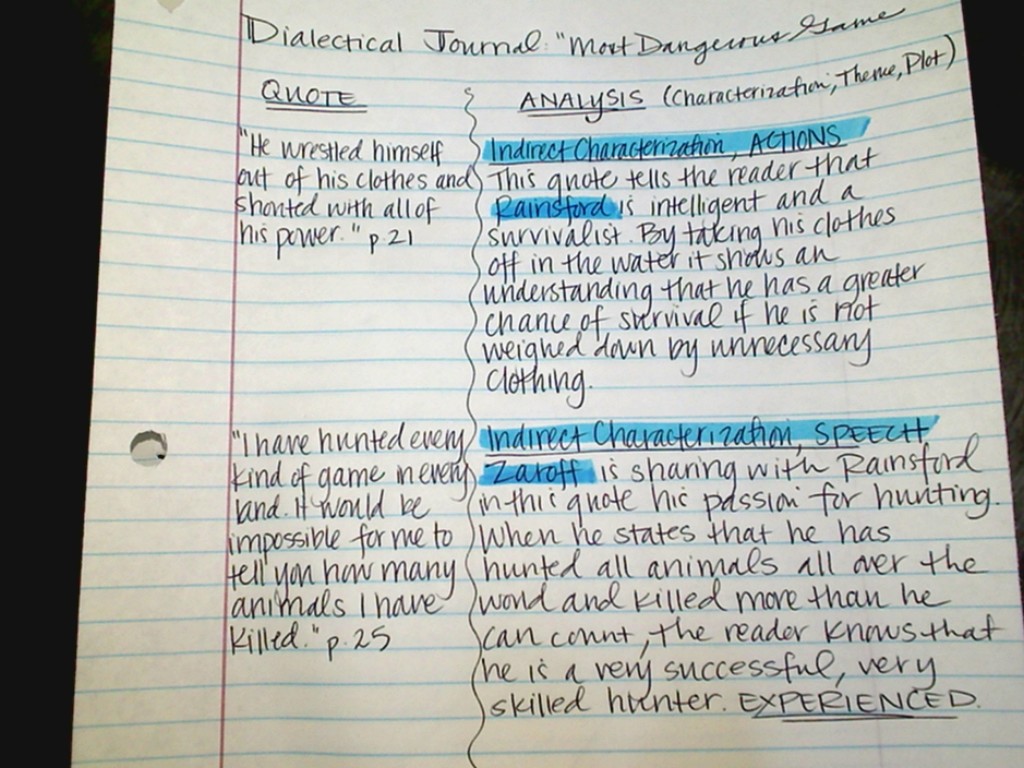 Dialectical Journal: "Most Dangerous Game
QUOTE
ANALYSIS (Characterization, Theme, Plot)
"He wrestled himself
out of his clothes and
shouted with all of
his power." p.21
Indirect Characterization, ACTIONS
This quote tells the reader that
Rainsford is intelligent and a
survivalist. By taking his clothes
off in the water it shows an
understanding that he has a greater
chance of survival if he is not
weighed down by unnecessary
clothing.
"I have hunted every
kind of game in every
land. It would be
impossible for me to
tell you how many
animals I have
killed." p.25
Indirect Characterization, SPEECH
Zaroff is sharing with Rainsford
in this quote his passion for hunting.
When he states that he has
hunted all animals all over the
world and killed more than he
can count, the reader knows that
he is a very successful, very
skilled hunter. EXPERIENCED.